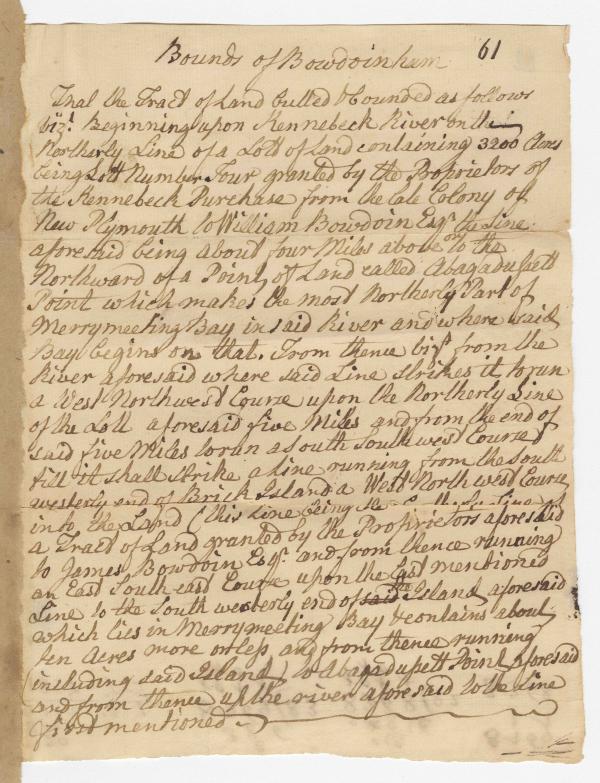 Bounds of Bowdoinham 61
That the Tract of Land butted & bounded as follows
viz.t Beginning upon Kennebeck River on the
Northerly Line of a Lott of Land containing 3200 Acres
being Lott Number Four granted by the Proprietors of
the Kennebeck Purchase from the late Colony of
New Plymouth to William Bowdoin Esq.r the Line
aforesaid being about four Miles above to the
Northward of a Point of Land called Abagadusett
Point which makes the most Northerly Part of
Merrymeeting Bay in said River and where said
Bay begins on that. From thence viz.t from the
River aforesaid where said Line strikes it to run
a West Northwest Course upon the Northerly Line
of the Lott aforesaid five Miles and from the end of
said five Miles to run a South Southwest Course
till it shall strike a line running from the South
westerly end of Brick Island a West Northwest Course
into the Land (this Line being the Line of
a Tract of Land granted by the Proprietors aforesaid
to James Bowdoin Esq.r and from thence running
an East South east Course upon the last mentioned
Line to the South westerly end of Island aforesaid
which lies in Merrymeeting Bay & contains about
ten Acres more or less, and from thence running
(including said Island) to Abagadusett Point aforesaid
and from thence up the river aforesaid to the Line
first mentioned